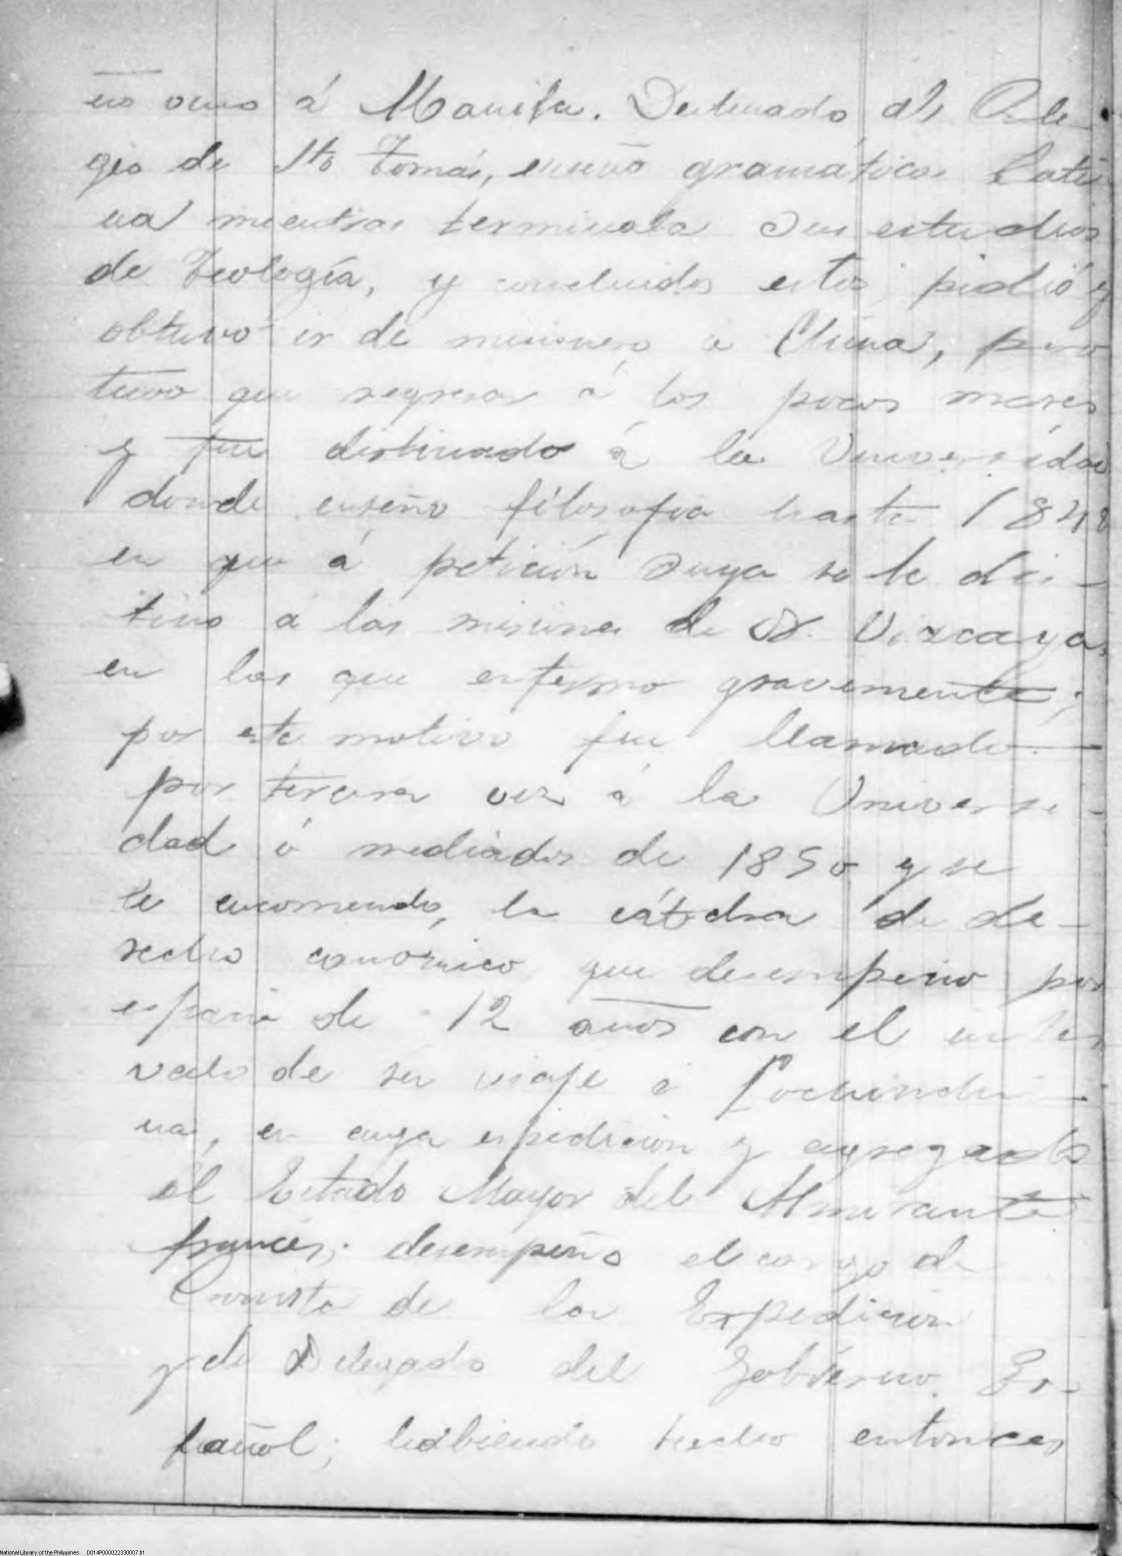 á Manila. Destinado al Cole-
gio de Sto Tomás, enseñó gramática Lati
na mientras terminaba sus estudios
de Teología, y concluidos estos pidió y
obtuvo ir de misionero a China, pero
tuvo que regresar á los pocos meses
y fue destinado á la Universidad
donde enseño filosofia hasta 1848
en que á petición suya se le des-
tino á las misiones de N. Vizcaya,
en las que enfermo gravemente;
por este motivo fue llamado
por tercera vez á la Universi-
dad á mediados de 1850 y se
le encomendó, la cátedra de de-
recho canónico que desempeño por
espacio de 12 años con el inter
valo de su viaje á Cochinchi-
na, en cuya espedicion y agregado
al Estado Mayor del Almirante
francés; desempeño el cargo de
Cronista de la Expedicion
y de Delegado del Gobierno Es-
pañol; habiendo hecho entonces
National Library of the Philippines D014P000022330007.tif